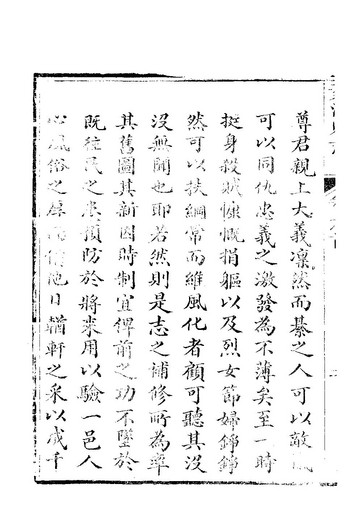 尊君親上大義凜然而綦之人可以敵愾
可以同仇忠義之激發為不薄矣至一時
挺身殺賊慷慨捐軀以及烈女節婦錚錚
然可以扶綱常而維風化者顧可聽其沒
沒無聞也耶若然則是志之補修所為率
其舊圖其新因時制宜俾前之功不墜於
既往民之患預防於將來用以驗一邑人
心風俗之厚而備他日輶軒之采以成千